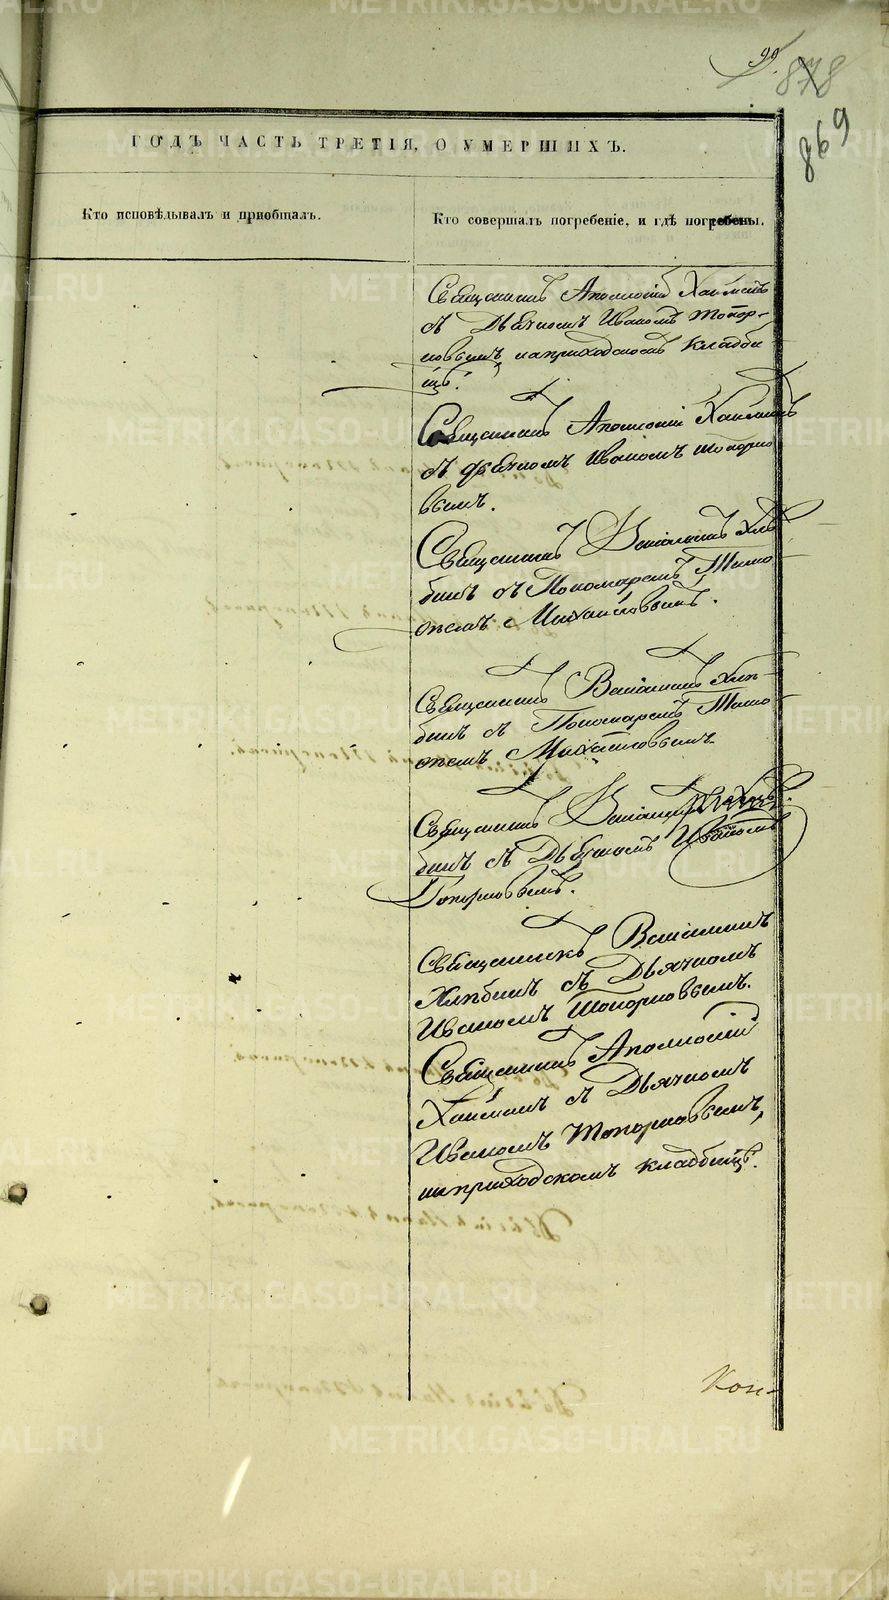 99.
878
869
ГОДЪ ЧАСТЬ ТРЕТІЯ, О УМЕРШИХЪ.
Кто исповѣдывалъ и приобщалъ.
Кто совершалъ погребеніе, и гдѣ погребены.
Священникъ Аполлоній
съ Дьячкомъ Иваномъ Топор-
ковымъ на приходскомъ кладби-
щѣ.
Священникъ Аполлоній
съ Дьячкомъ Иваномъ Топорко
вымъ.
Священникъ Веніаминъ Хлѣ
бинъ съ Пономаремъ Тимо
ѳеемъ Михайловымъ.
Священникъ Веніаминъ Хлѣ-
бинъ съ Пономаремъ Тимо
ѳеемъ Михайловымъ
Священникъ Веніаминъ
бинъ съ Дьячкомъ Иваномъ
Топорковымъ.
Священникъ Веніаминъ
Хлѣбинъ съ Дьячкомъ
Иваномъ Топорковымъ.
Священникъ Аполлоній
съ Дьячкомъ
Иваномъ Топорковымъ,
на приходскомъ кладбищѣ.
METRIKI.GASO-URAL.RU